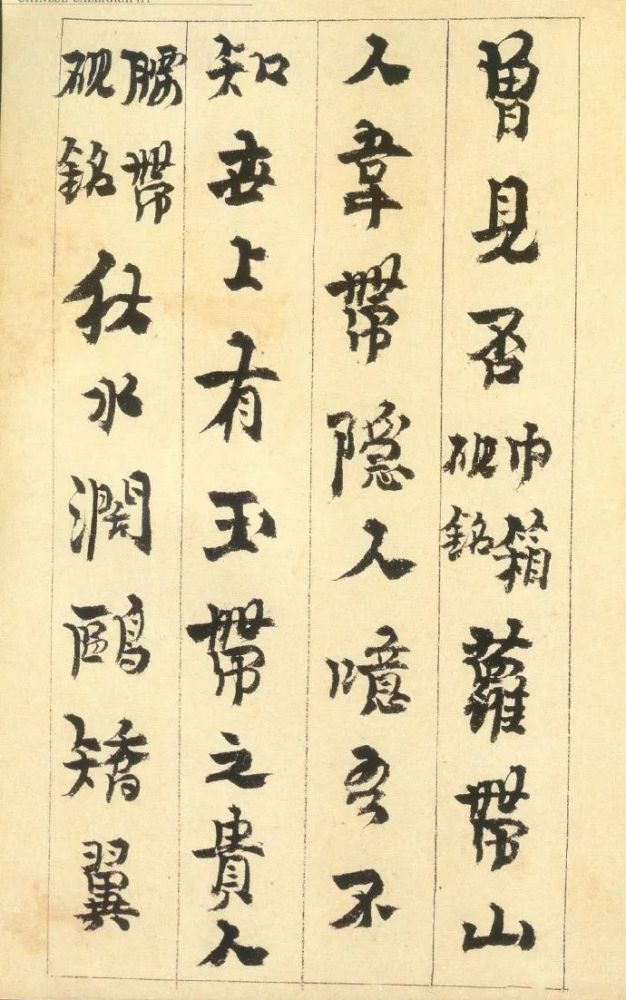 CHINESE CALLIGRAPHY
曾見否巾箱硯銘蘿帶山
人韋帶隱人噫吾不
知世上有玉帶之貴人
腰帶硯銘秋水闊鷗矯翼